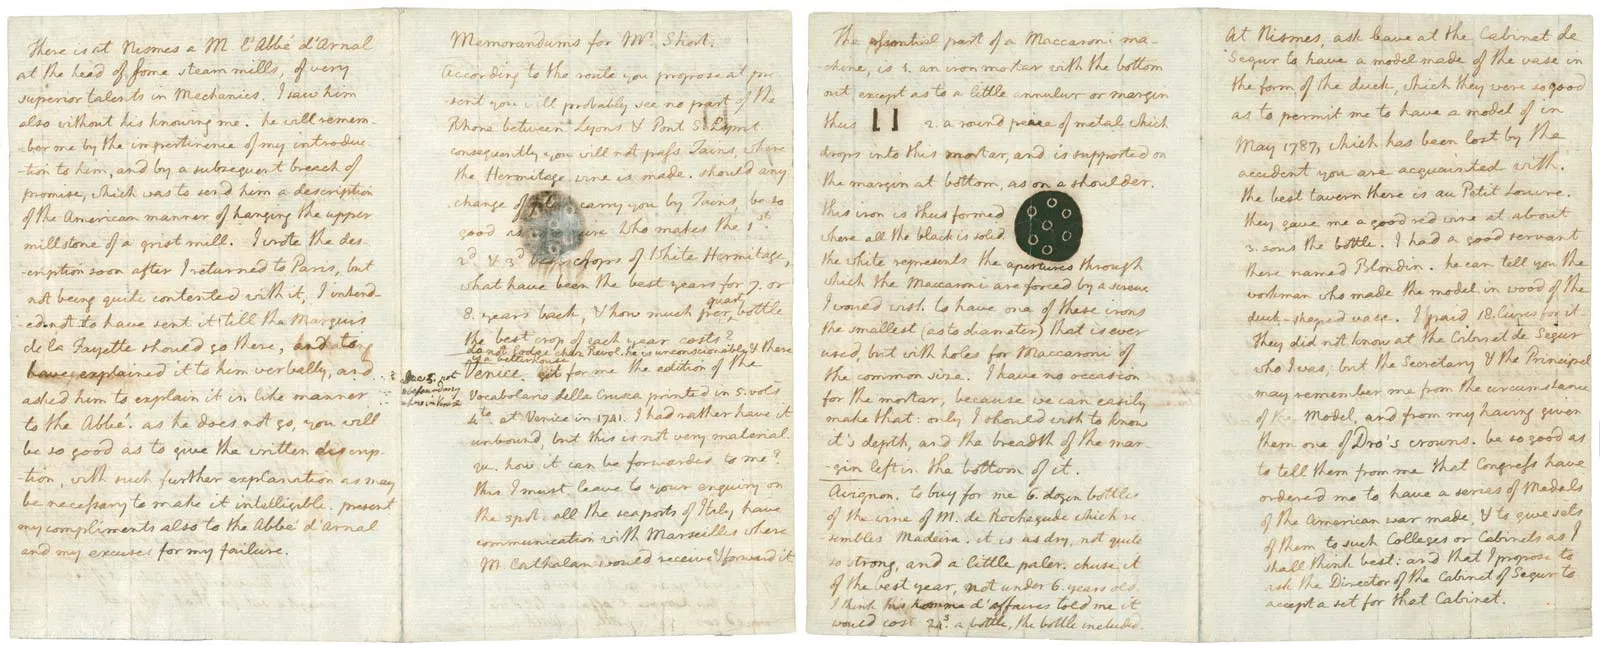 There is at Nismes a M. l'Abbé d'Arnal
at the head of some steam mills, of very
superior talents in Mechanics. I saw him
also without his knowing me. he will remem-
-ber me by the impertinence of my introduc-
-tion to him, and by a subsequent breach of
promise, which was to send him a description
of the American manner of hanging the upper
millstone of a grist mill. I wrote the des-
-cription soon after I returned to Paris, but
not being quite contented with it, I intend-
-ed not to have sent it till the Marquis
de la Fayette should go there, and to
have explained it to him verbally, and
asked him to explain it in like manner
to the Abbé. as he does not go, you will
be so good as to give the written descrip-
-tion, with such further explanation as may
be necessary to make it intelligible. present
my compliments also to the Abbé d'Arnal
and my excuses for my failure.
Memorandums for Mr. Short.
According to the route you propose at pre-
-sent you will probably see no part of the
Rhone between Lyons & Pont St. Esprit
consequently you will not pass Tains, where
the Hermitage wine is made. should any
change of plan carry you by Tains, be so
good as who makes the 1st.
2d. & 3d best crops of White Hermitage,
what have been the best years for 7. or
8. years back, & how much per quart bottle
the best crop of each year costs?
do not lodge chez Revol. he is unconscionable & there
is a better house.
Venice. get for me the edition of the
Vocabolario della Crusca printed in 5. vols
4to. at Venice in 1741. I had rather have it
unbound, but this is not very material.
qu. how it can be forwarded to me?
this I must leave to your enquiry on
the spot. all the seaports of Italy have
communication with Marseilles where
M. Cathalan would receive & forward it
The essential part of a Maccaroni ma-
-chine, is 1. an iron mortar with the bottom
out except as to a little annulus or margin
thus 2. a round peice of metal which
drops into this mortar, and is supported on
the margin at bottom, as on a shoulder.
this iron is thus formed
where all the black is solid
the white represents the apertures through
which the Maccaroni are forced by a screw
I would wish to have one of these irons
the smallest (as to diameter) that is ever
used, but with holes for Maccaroni of
the common size. I have no occasion
for the mortar, because we can easily
make that: only I should wish to know
it's depth, and the breadth of the mar-
-gin left in the bottom of it.
Avignon. to buy for me 6. dozen bottles
of the wine of M. de Rochegude which re
sembles Madeira. it is as dry, not quite
so strong, and a little paler. chuse it
of the best year, not under 6. years old.
I think his homme d'affaires told me it
would cost 24s. a bottle, the bottle included.
At Nismes, ask leave at the Cabinet de
Segur to have a model made of the vase in
the form of the duck, which they were so good
as to permit me to have a model of in
May 1787, which has been lost by the
accident you are acquainted with.
the best tavern there is au Petit Louvre.
they gave me a good red wine at about
3. sous the bottle. I had a good servant
there named Blondin. he can tell you the
workman who made the model in wood of the
duck-shaped vase. I paid 18. livres for it.
they did not know at the Cabinet de Segur
who I was, but the Secretary & the Principal
may remember me from the circumstance
of the Model, and from my having given
them one of Dro's crowns. be so good as
to tell them from me that Congress have
ordered me to have a series of Medals
of the American war made, & to give sets
of them to such Colleges or Cabinets as I
shall think best: and that I propose to
ask the Director of the Cabinet of Segur to
accept a set for that Cabinet.